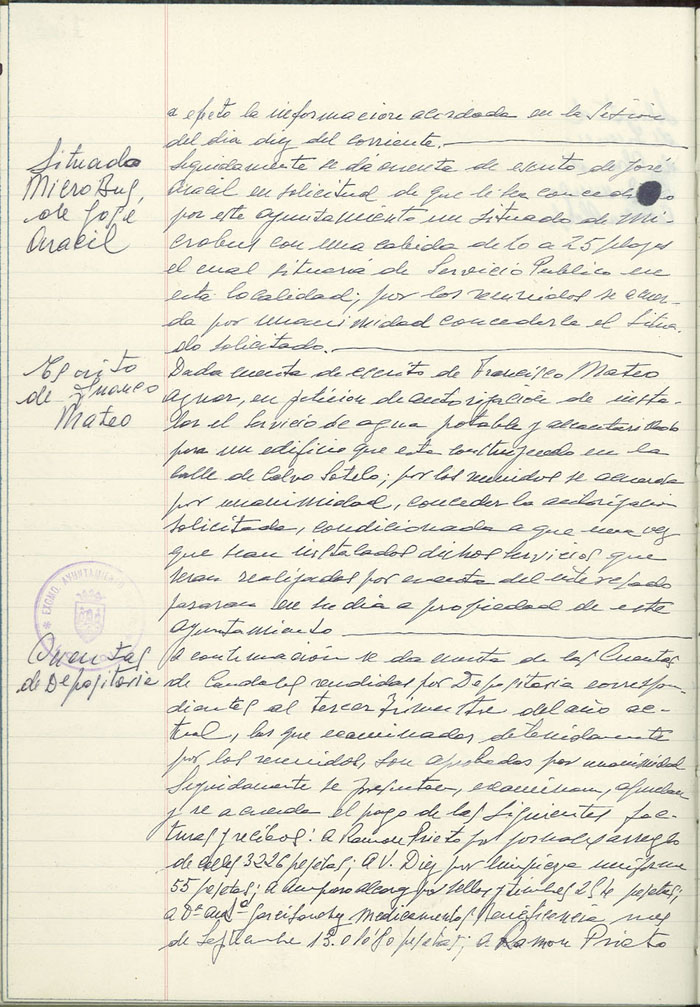 a efeto la informacion acordada en la Sesion
del dia diez del corriente.
Situado
MicroBus,
de José
Aracil
Seguidamente se da cuenta de escrito de José
Aracil en solicitud de que le sea concedido
por este ayuntamiento un situado de Mi-
crobus con una cabida de 20 a 25 plazas
el cual situaria de Servicio Publico en
esta localidad; por los reunidos se acuer-
da por unanimidad concederle el Situa-
do solicitado.
Escrito
de Franco
Mateo
Dada cuenta de escrito de Francisco Mateo
Aznar, en peticion de autorizacion de insta-
lar el servicio de agua potable y alcantarillado
para un edificio que esta construyendo en la
calle de Calvo Sotelo; por los reunidos se acuerda
por unanimidad, conceder la autorizacion
solicitada, condicionada a que una vez
que sean instalados dichos servicios, que
seran realizados por cuenta del interesado
pasaran en su dia a propiedad de este
ayuntamiento.
EXCMO. AYUNTAMIENTO
Cuentas
de Depositaria
A continuación se da cuenta de las Cuentas
de Caudales rendidas por Depositaria correspon-
dientes al tercer Trimestre del año ac-
tual, las que examinadas detenidamente
por los reunidos, son aprobadas por unanimidad
Seguidamente se presentan, examinan, aprueban
y se acuerda el pago de las siguientes fac-
turas y recibos: a Ramon Prieto por jornales arreglo
de 3226 pesetas; a V. Diez por limpieza uniforme
55 pesetas; a Amparo Alcaraz por sellos y timbres pesetas;
a Dª Garcia Sanchez Medicamentos Beneficencia mes
de Septiembre 13. pesetas; a Ramon Prieto